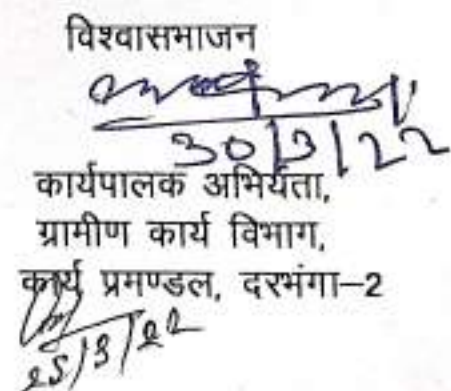 विश्वासभाजन
30/3/22
कार्यपालक अभियंता,
ग्रामीण कार्य विभाग,
कार्य प्रमण्डल, दरभंगा-2
25/3/22